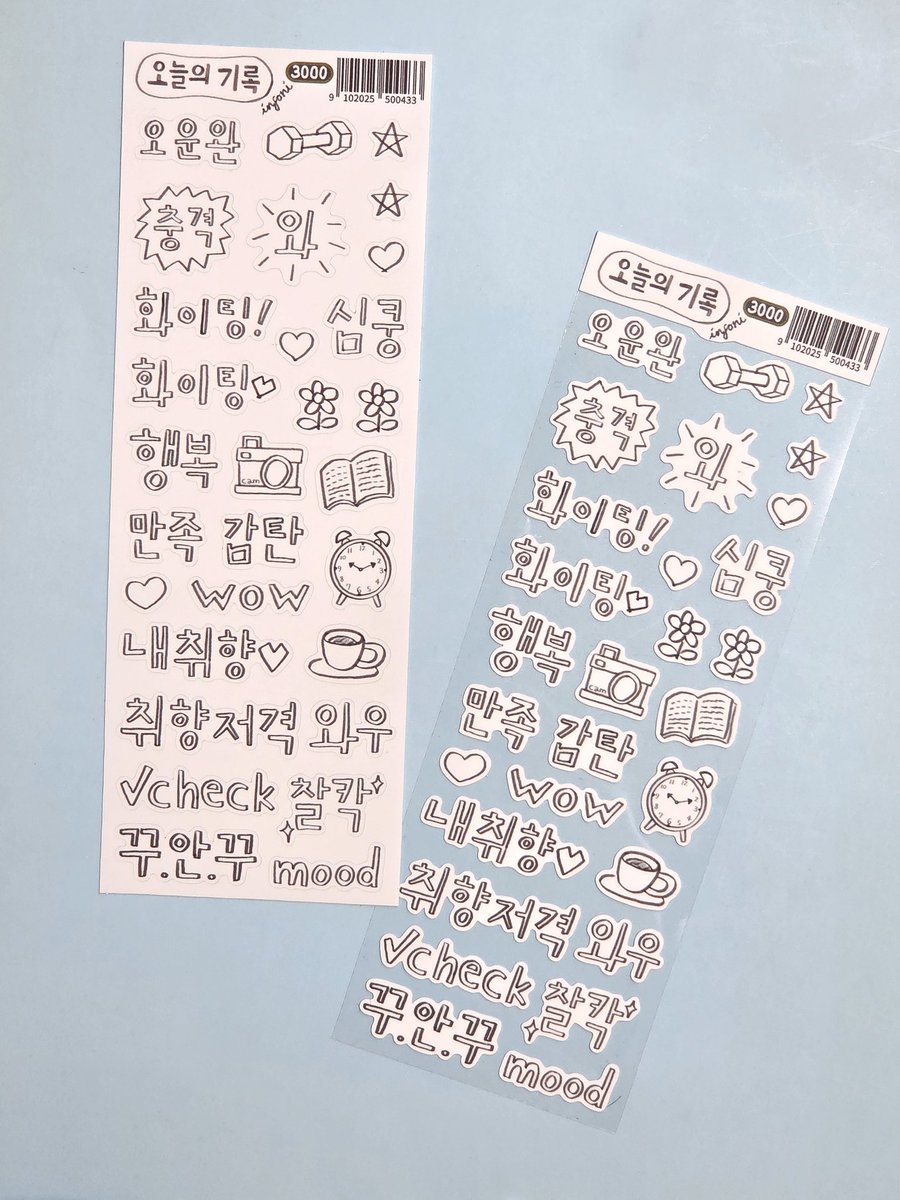 오늘의 기록 3000
infoni
9 102025 500433
오운완
충격 와
화이팅! 심쿵
화이팅
행복 cam
만족 감탄
12 1 2 3 4 5 6 7 8 9 10 11
wow
내취향
취향저격 와우
√check 찰칵
꾸.안.꾸 mood
오늘의 기록 3000
infoni
9 102025 500433
오운완
충격 와
화이팅! 심쿵
화이팅
행복 cam
만족 감탄
12 1 2 3 4 5 6 7 8 9 10 11
wow
내취향
취향저격 와우
√check 찰칵
꾸.안.꾸 mood